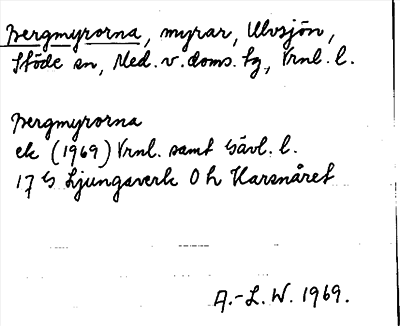 Bergmyrorna, myrar, Ulvsjön,
Stöde sn, Med. v. doms. tg, Vrnl. l.
Bergmyrorna
ek (1969) Vrnl. samt Gävl. l.
17 G Ljungaverk O h Harsnåret
A.-L. W. 1969.